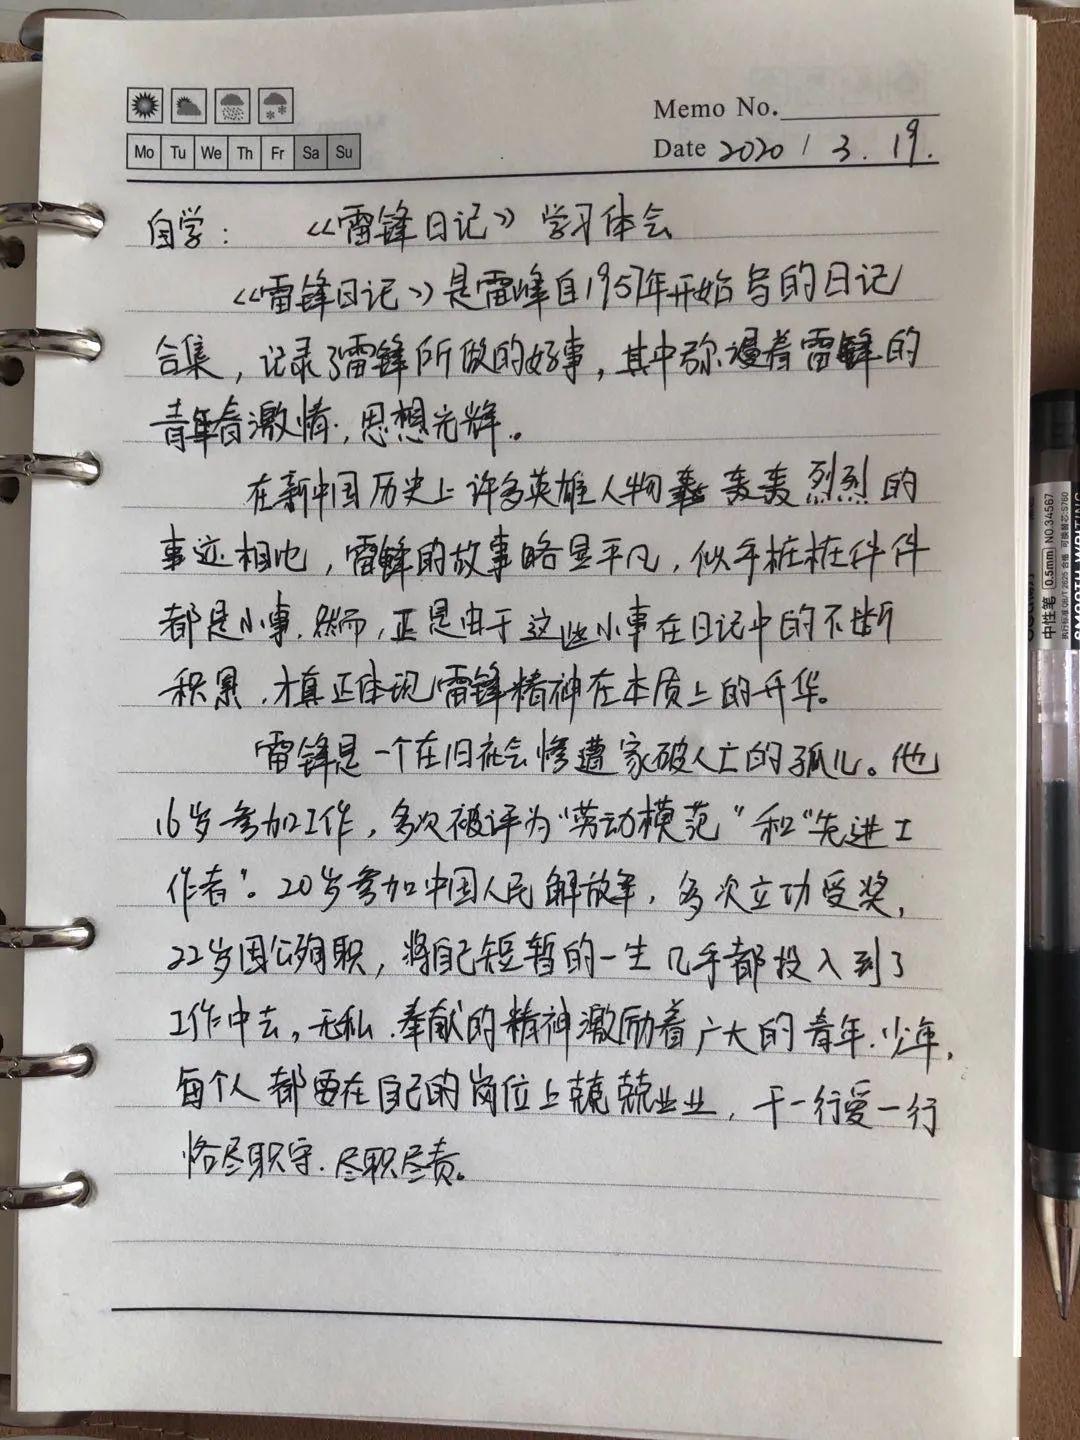 Memo No.
Mo Tu We Th Fr Sa Su
Date 2020 / 3. 19.
自学： 《雷锋日记》学习体会
《雷锋日记》是雷峰自1957年开始写的日记
合集，记录了雷锋所做的好事，其中弥漫着雷锋的
青年激情，思想光辉。
在新中国历史上许多英雄人物轰轰烈烈的
事迹相比，雷锋的故事略显平凡，似乎桩桩件件
都是小事，然而，正是由于这些小事在日记中的不断
积累，才真正体现雷锋精神在本质上的升华。
雷锋是一个在旧社会惨遭家破人亡的孤儿。他
16岁参加工作，多次被评为“劳动模范”和“先进工
作者”。20岁参加中国人民解放军，多次立功受奖，
22岁因公殉职，将自己短暂的一生几乎都投入到了
工作中去，无私、奉献的精神激励着广大的青年、少年，
每个人都要在自己的岗位上兢兢业业，干一行爱一行
恪尽职守、尽职尽责。
中性笔 0.5mm NO.34567